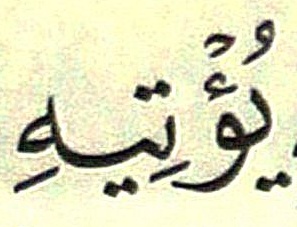 يُؤْتِيهِ